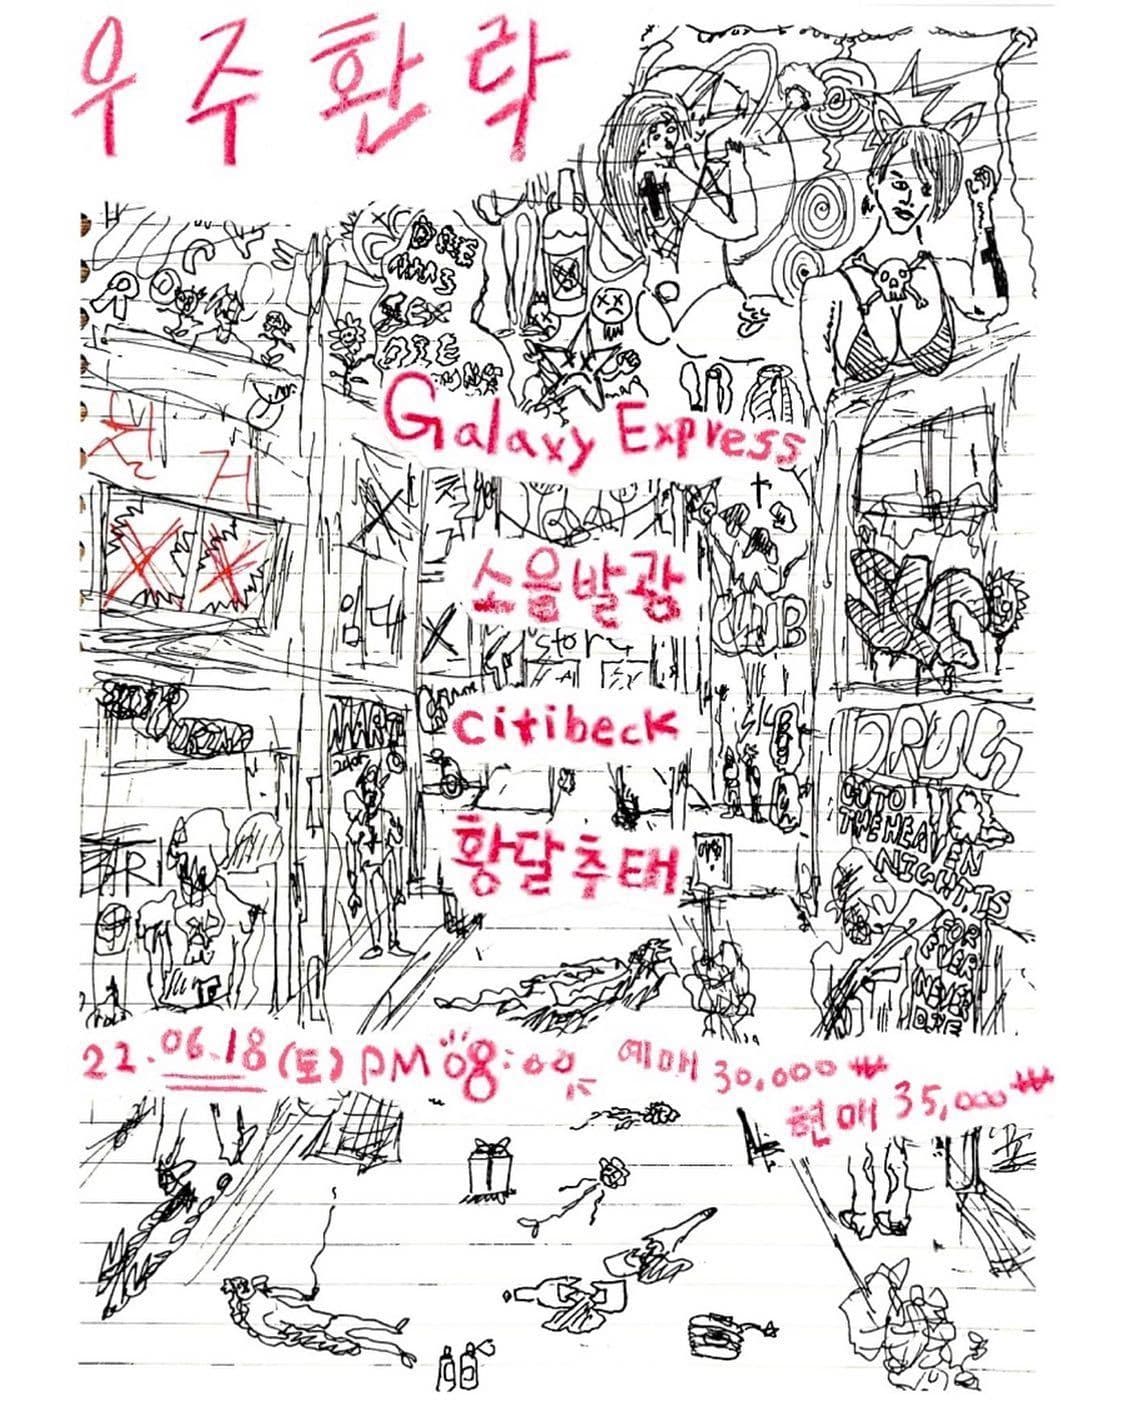 우주환락
DIE
SEX
DIE
Galaxy Express
철거
임대
소음발광
CLUB
Store
Citibeck
MART
24hr
DRUG
황달추태
BAR
GO TO
THE HEAVEN
NIGHTS
FOR
EVER
NEVER
DIE
22.06.18 (토) PM 08:00
예매 30,000₩
현매 35,000₩